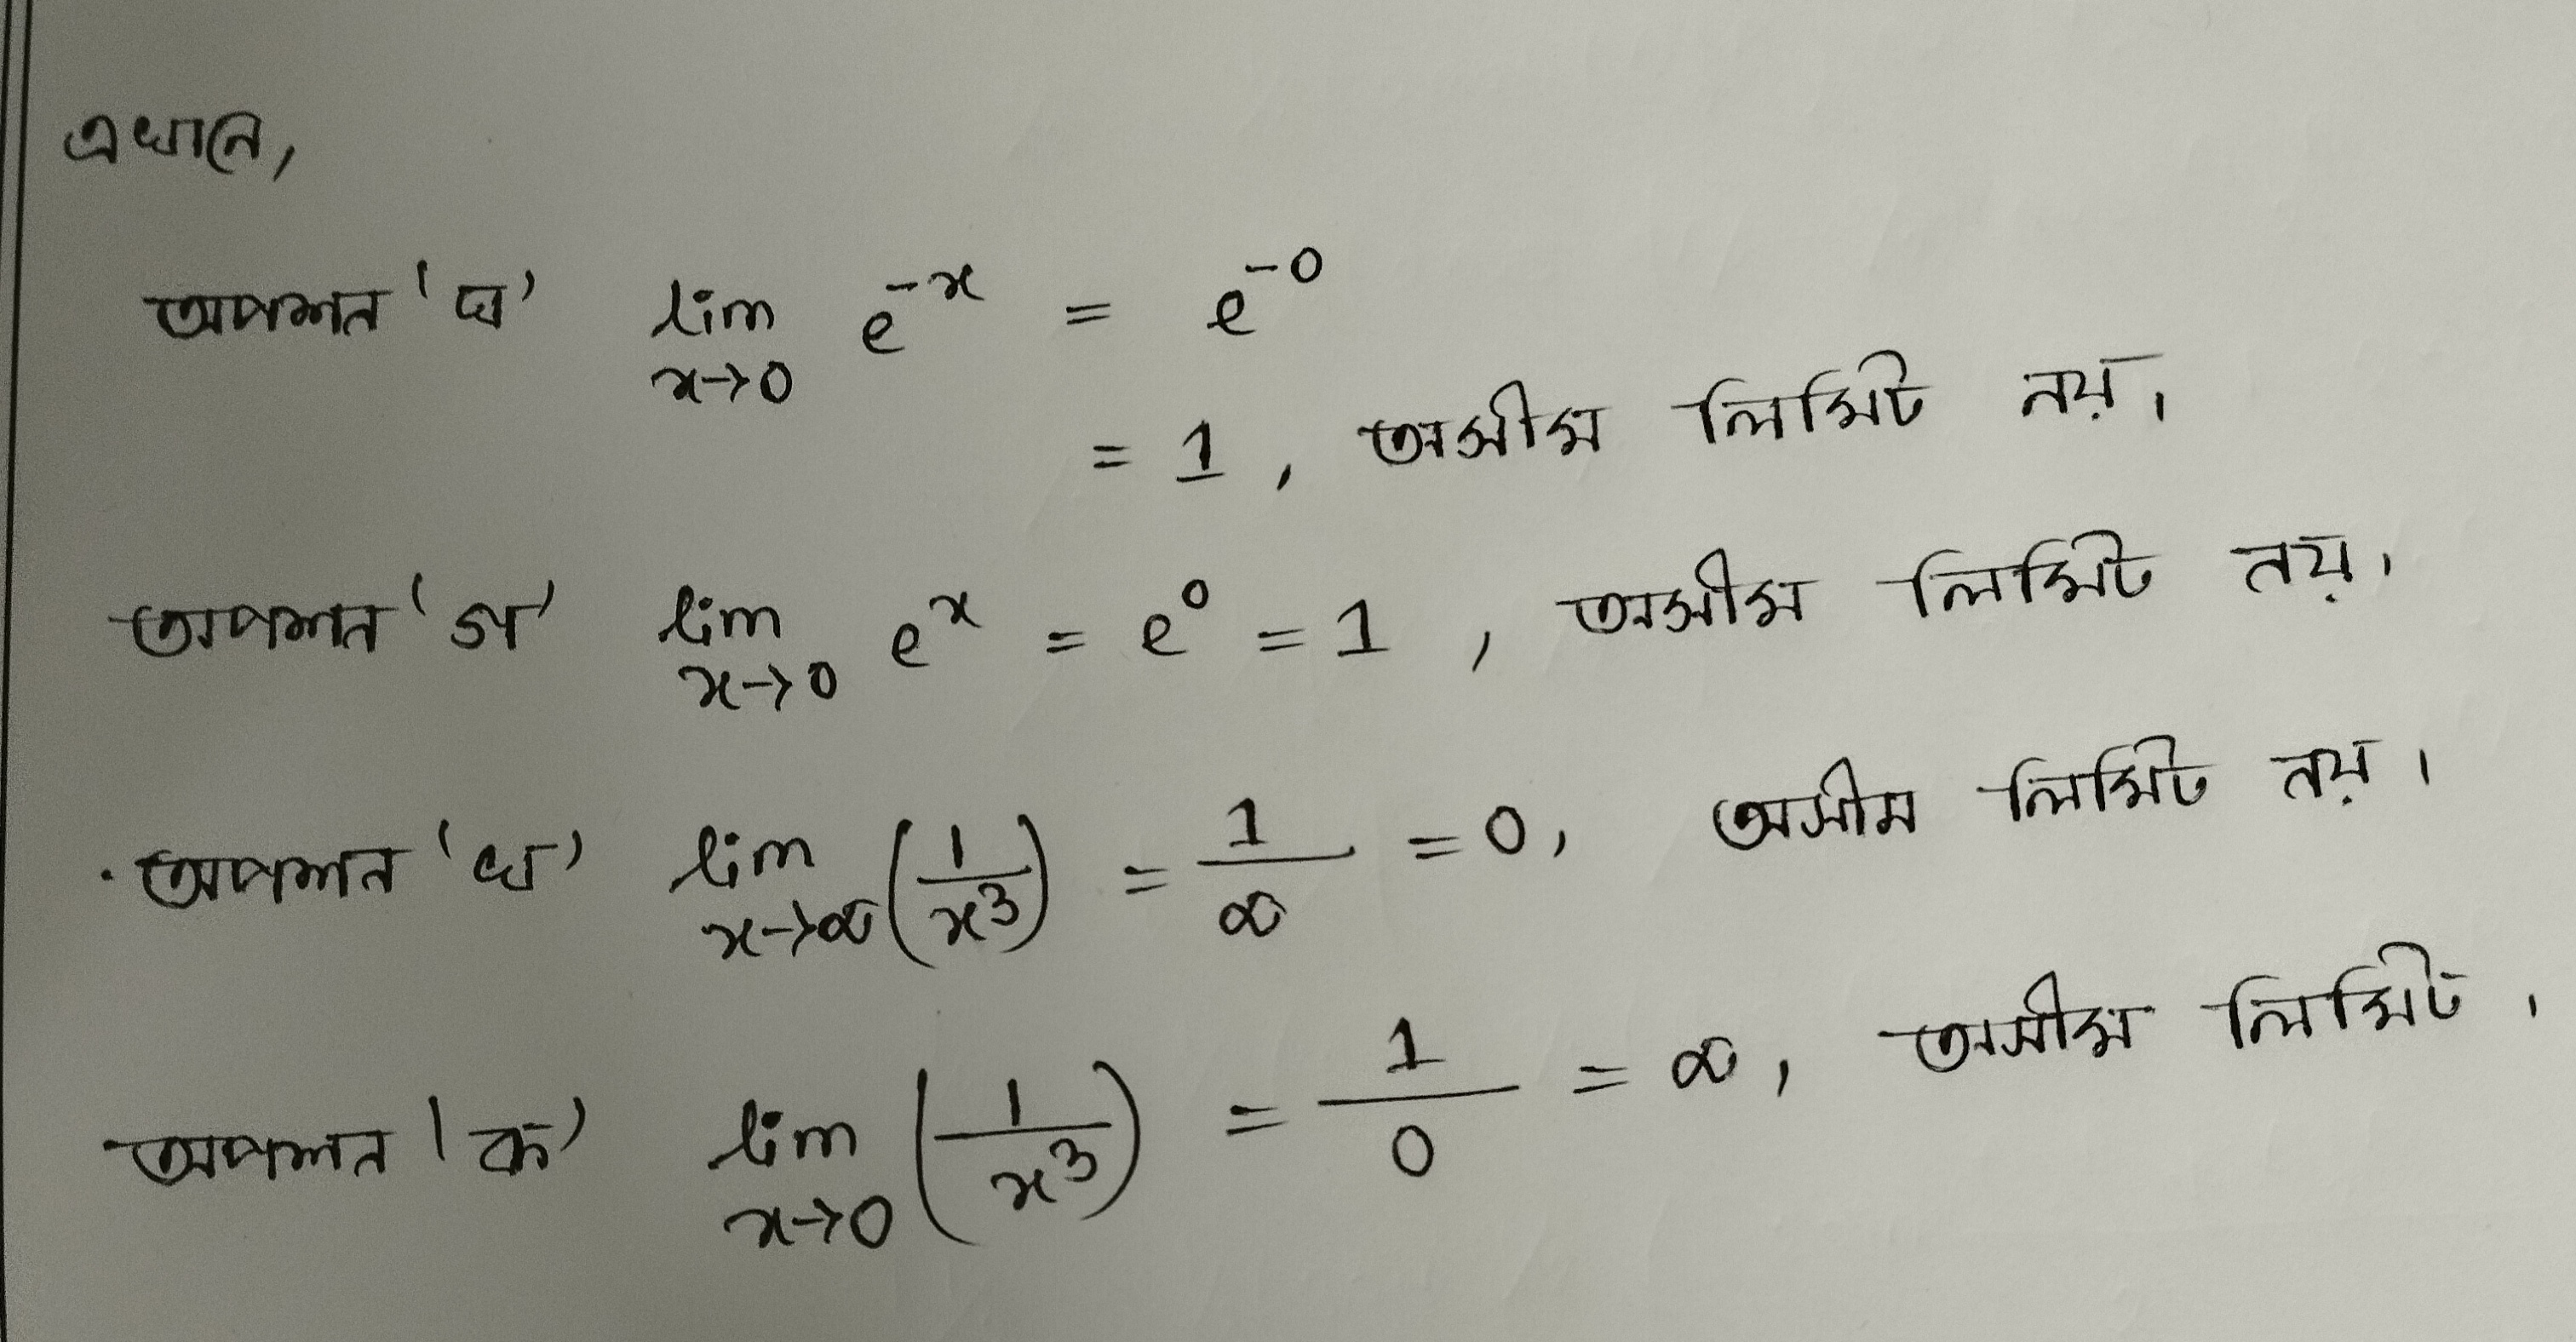 এখানে,
অপশন 'ঘ' lim x→0 e^{-x} = e^{-0}
= 1, অসীম লিমিট নয়।
অপশন 'গ' lim x→0 e^x = e^0 = 1, অসীম লিমিট নয়।
অপশন 'খ' lim x→∞ (1/x^3) = 1/∞ = 0, অসীম লিমিট নয়।
অপশন 'ক' lim x→0 (1/x^3) = 1/0 = ∞, অসীম লিমিট।